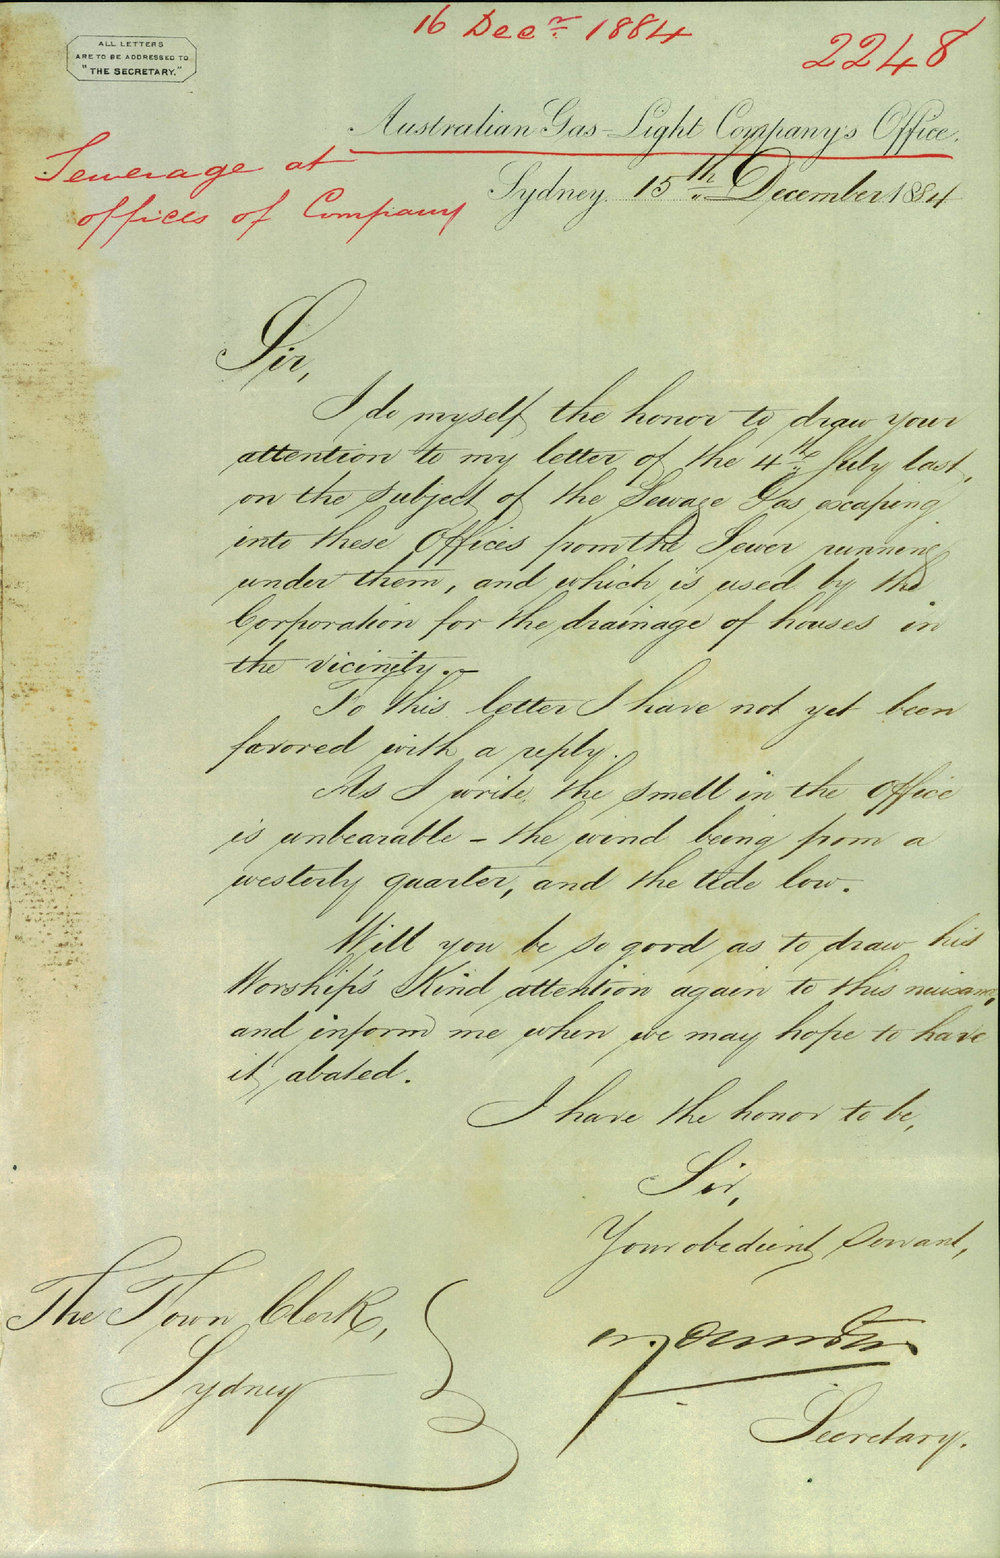 16 Decr. 1884
2248
ALL LETTERS
ARE TO BE ADDRESSED TO
"THE SECRETARY."
Australian Gas-Light Company's Office.
Sewerage at
offices of Company
Sydney. 15th December 1884
Sir,
I do myself the honor to draw your
attention to my letter of the 4th July last,
on the subject of the Sewage Gas escaping
into these Offices from the Sewer running
under them, and which is used by the
Corporation for the drainage of houses in
the vicinity.—
To this letter I have not yet been
favored with a reply.
As I write, the smell in the Office
is unbearable – the wind being from a
westerly quarter, and the tide low.
Will you be so good as to draw his
Worship's Kind attention again to this nuisance,
and inform me when we may hope to have
it abated.
I have the honor to be,
Sir,
Your obedient Servant,
The Town Clerk,
Sydney
Secretary.